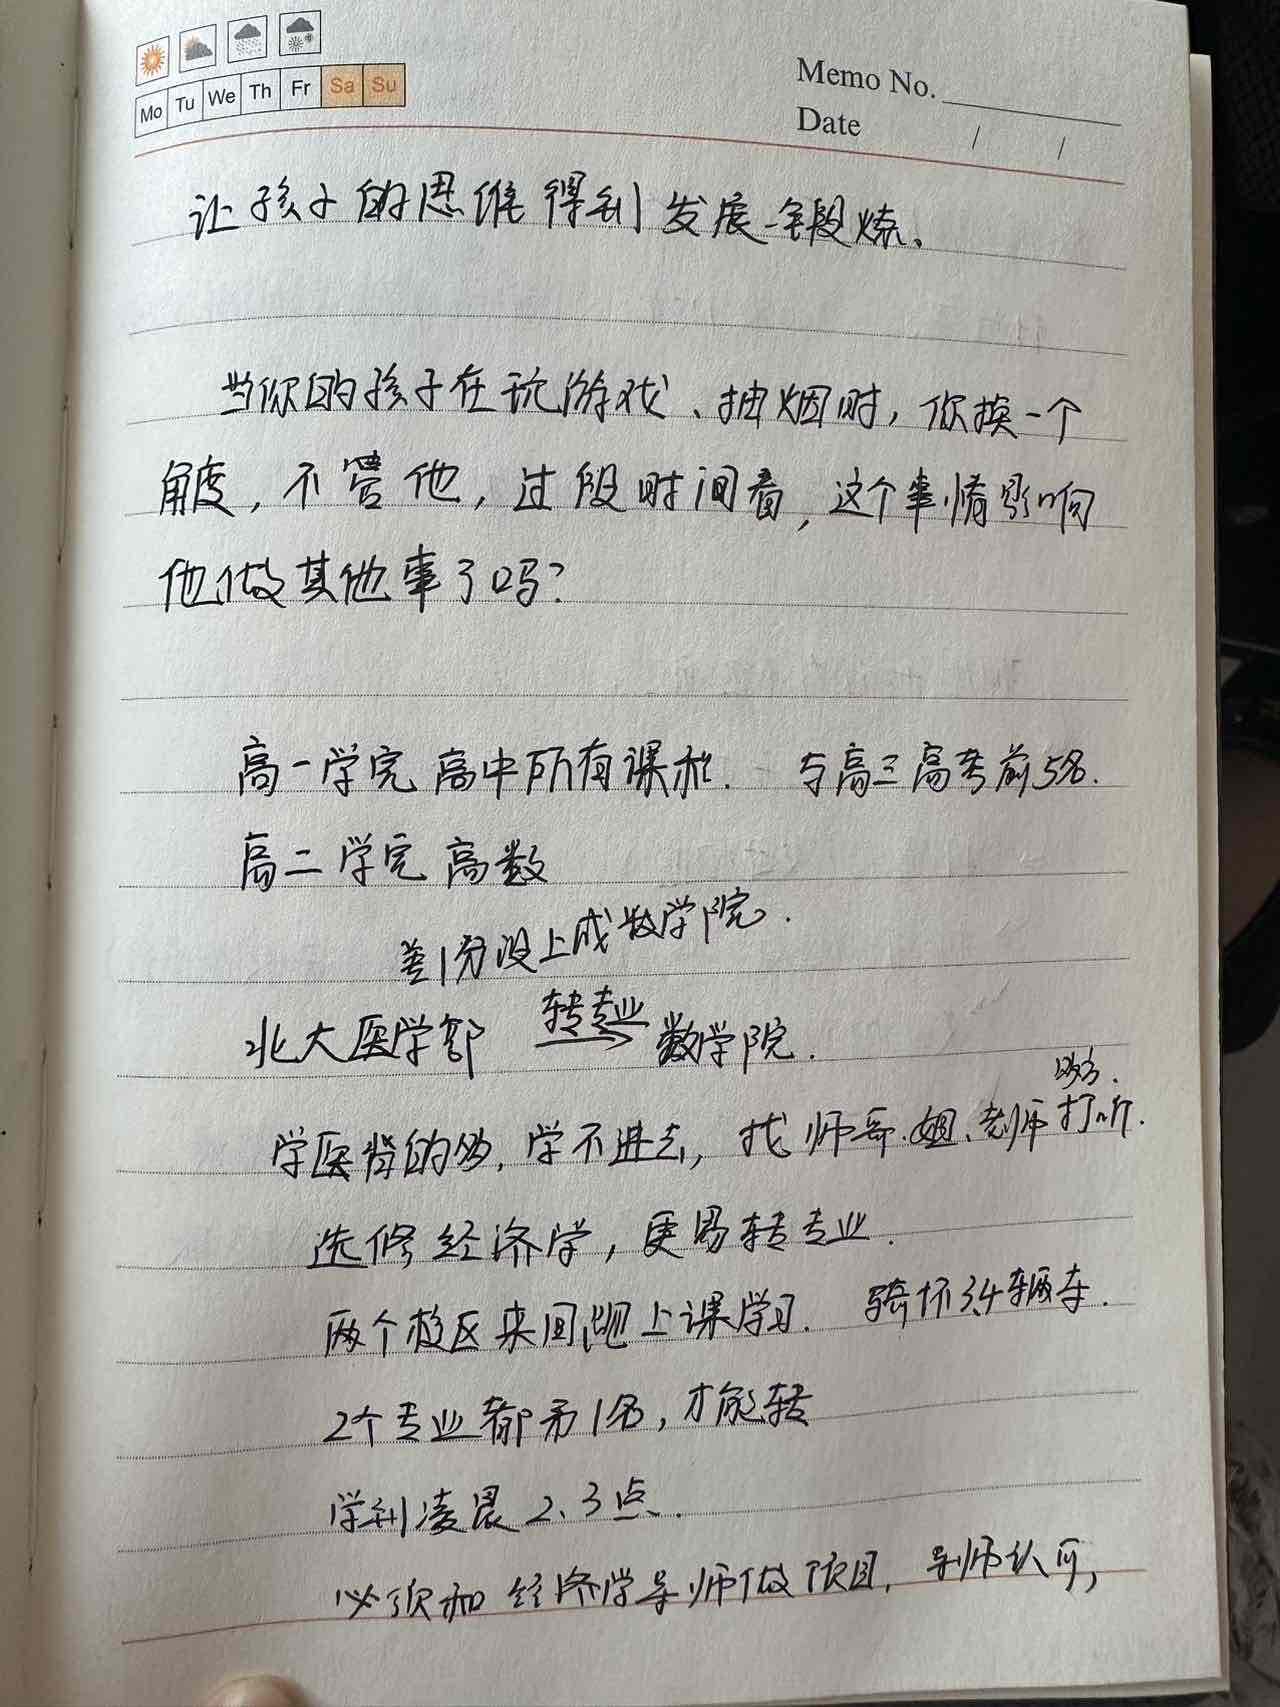 Mo Tu We Th Fr Sa Su
Memo No.
Date / /
让孩子的思维得到发展、锻炼、
当你的孩子在玩游戏、抽烟时，你换一个
角度，不管他，过段时间看，这个事情影响
他做其他事了吗？
高一学完高中所有课程. 与高三高考前5名.
高二学完高数
差1分没上成数学院.
北大医学部 转专业 数学院.
学医背的多，学不进去，找师哥.姐、老师打听.
选修经济学，更易转专业.
两个校区来回跑上课学习. 骑坏3,4辆车.
2个专业都第1名，才能转
学到凌晨2、3点.
必须和经济学导师做项目，导师认可，